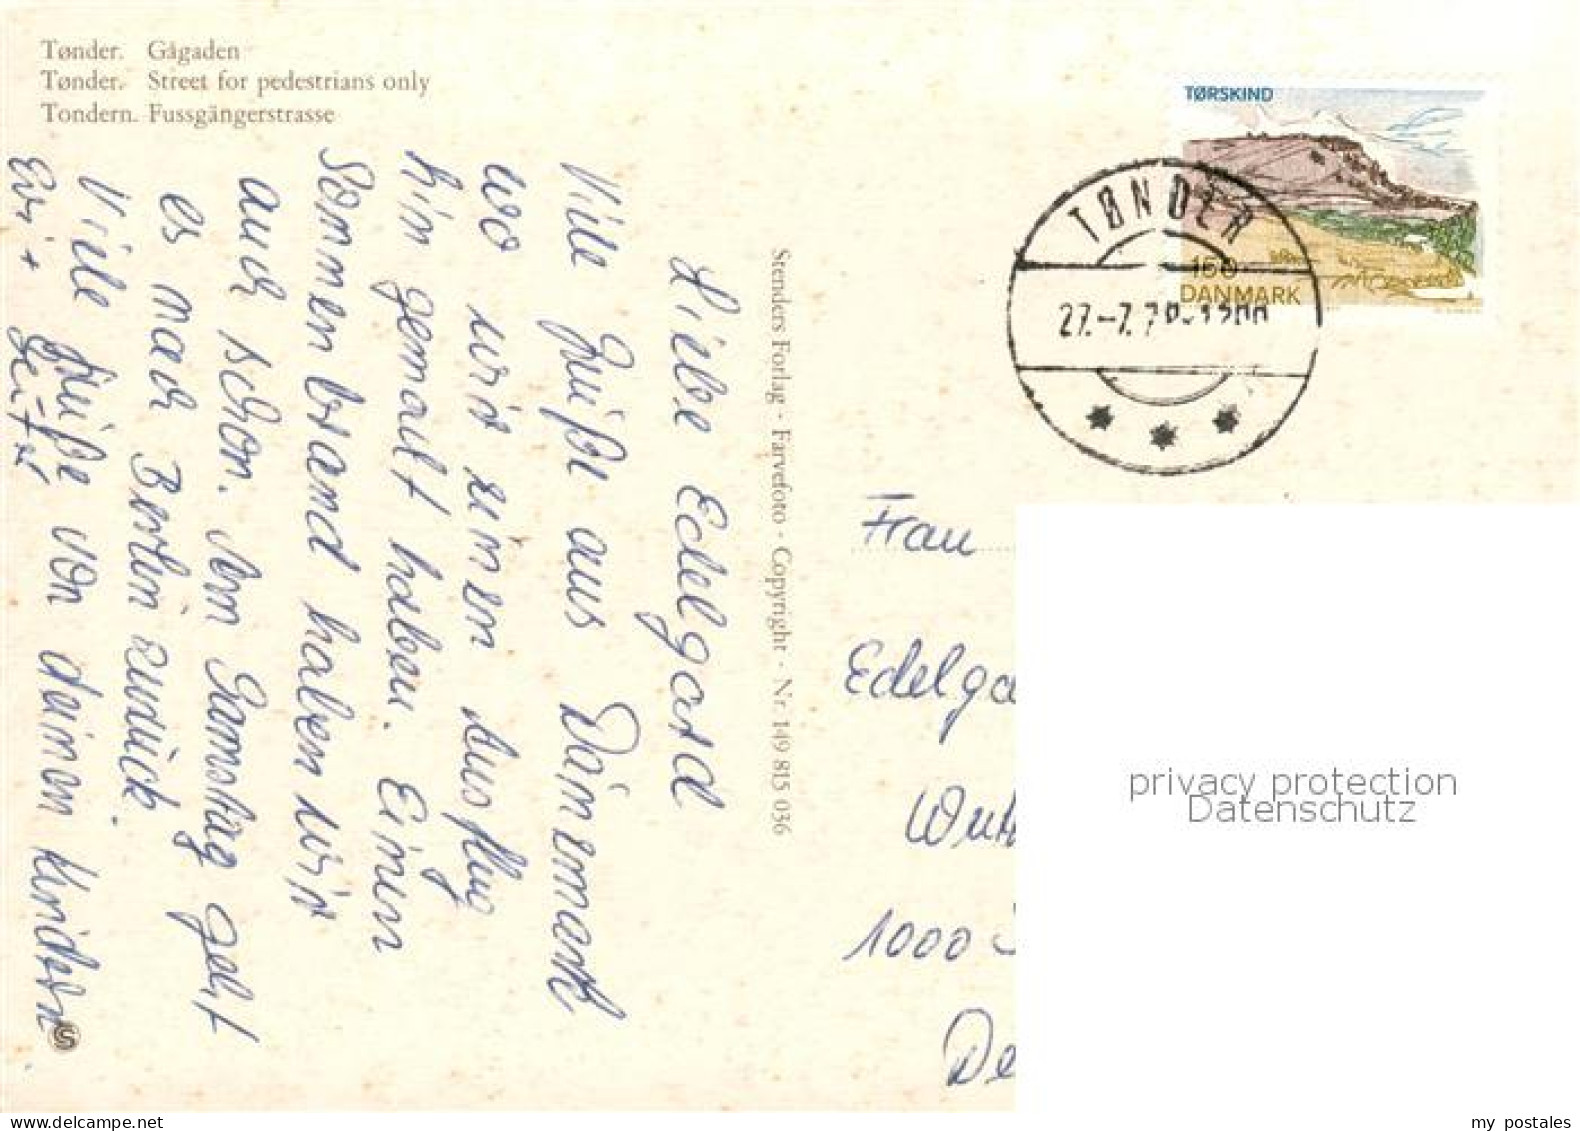 Tønder. Gågaden
Tønder. Street for pedestrians only
Tondern. Fussgängerstrasse
Liebe Edelgard
Viele Grüße aus Dänemark
wo wir einen Ausflug
hin gemacht haben. Einen
Sonnenbrand haben wir
auch schon. Am Samstag geht
es nach Berlin zurück.
Viele Grüße von deinen Kindern
Evi +
Stenders Forlag - Farvefoto - Copyright - Nr 149 815 036
TØRSKIND
150
DANMARK
TØNDER
27.-7.7
Frau
Edelga
1000
De
privacy protection
Datenschutz
www.delcampe.net
my postales